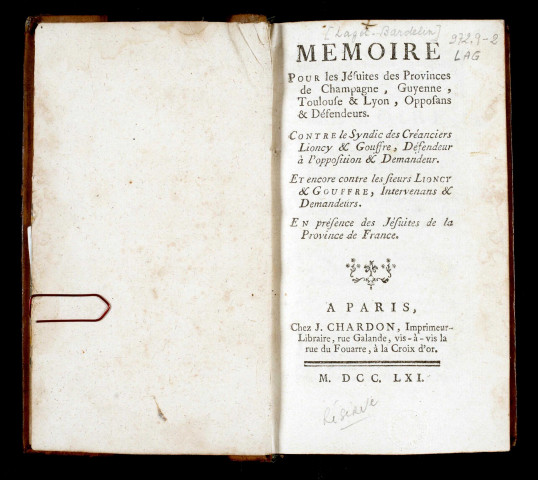 [Laget-Bardelin]
972.9-2
LAG
MEMOIRE
POUR les Jésuites des Provinces
de Champagne, Guyenne,
Toulouse & Lyon, Opposans
& Défendeurs.
CONTRE le Syndic des Créanciers
Lioncy & Gouffre, Défendeur
à l'opposition & Demandeur.
ET encore contre les sieurs LIONCY
& GOUFFRE, Intervenans &
Demandeurs.
EN présence des Jésuites de la
Province de France.
A PARIS,
Chez J. CHARDON, Imprimeur-
Libraire, rue Galande, vis-à-vis la
rue du Fouarre, à la Croix d'or.
M. DCC. LXI.
Réserve